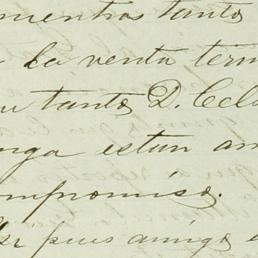 mentras tanto
la venta term
tanto D. Cels
nga estan am
ompromiso.
pues amigo